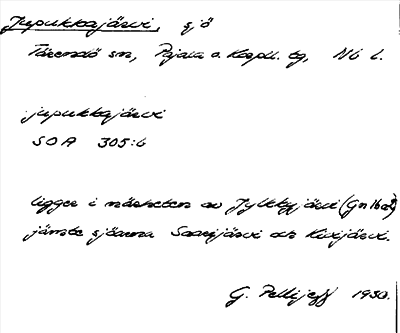 Jupukkajärvi, sjö
Tärendö sn, Pajala o. Korpil. tg, Nb l.
jupukkajärvi
SOA 305:6
ligger i närheten av Jylkkyjärvi
jämte sjöarna Saarijärvi och Kivijärvi.
G. Pellijeff 1930.